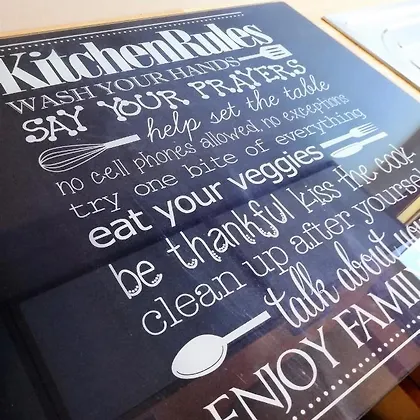 Kitchen Rules
WASH YOUR HANDS
SAY YOUR PRAYERS
help set the table
no cell phones allowed, no exceptions
try one bite of everything
eat your veggies
be thankful kiss the cook
clean up after yourself
talk about
ENJOY FAMI